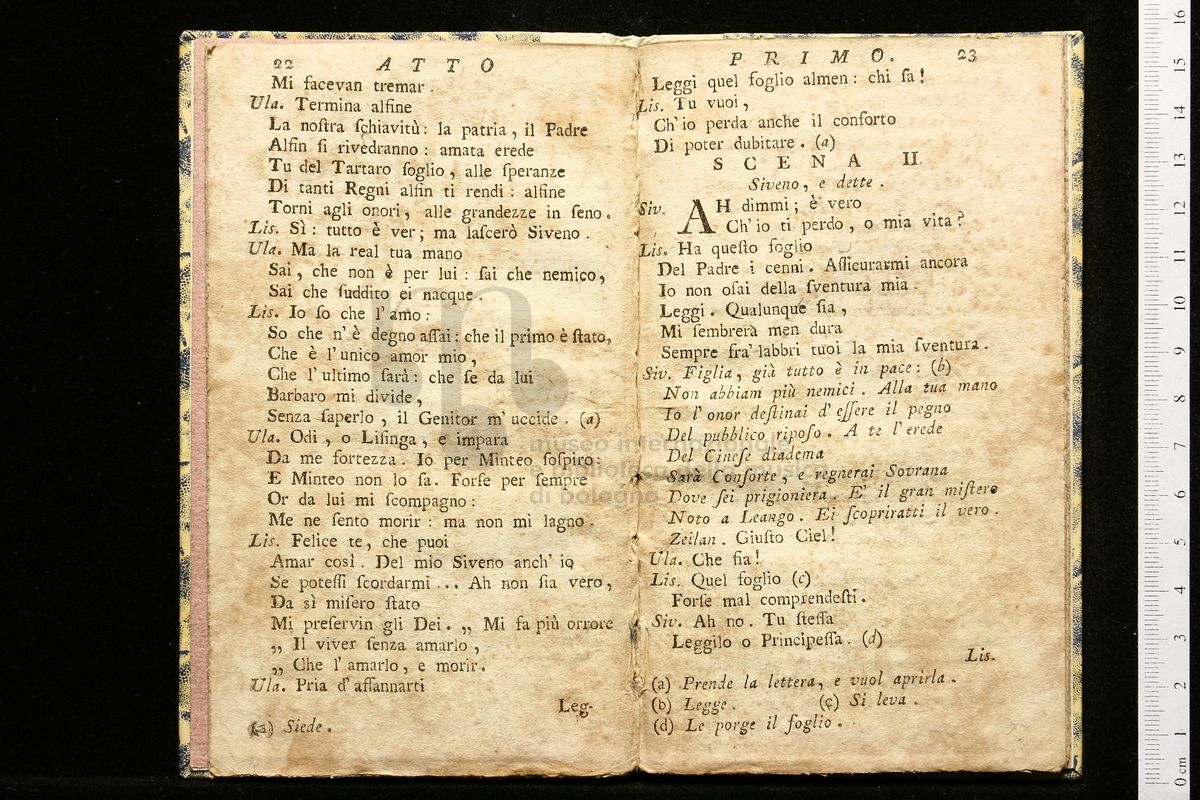 22 ATTO
Mi facevan tremar.
Ula. Termina alfine
La noſtra ſchiavitù: la patria, il Padre
Alfin ſi rivedranno: amata erede
Tu del Tartaro ſoglio, alle ſperanze
Di tanti Regni alfin ti rendi: alfine
Torni agli onori, alle grandezze in ſeno.
Lis. Sì: tutto è ver; ma laſcerò Siveno.
Ula. Ma la real tua mano
Sai, che non è per lui: ſai che nemico,
Sai che ſuddito ei nacque.
Lis. Io ſo che l'amo:
So che n'è degno aſſai: che il primo è ſtato,
Che è l'unico amor mio,
Che l'ultimo ſarà: che ſe da lui
Barbaro mi divide,
Senza ſaperlo, il Genitor m'uccide. (a)
Ula. Odi, o Liſinga, e impara
Da me fortezza. Io per Minteo ſoſpiro:
E Minteo non lo ſa. Forſe per ſempre
Or da lui mi ſcompagno:
Me ne ſento morir: ma non mi lagno.
Lis. Felice te, che puoi
Amar così. Del mio Siveno anch'io
Se poteſſi ſcordarmi... Ah non ſia vero,
Da sì miſero ſtato
Mi preſervin gli Dei. „ Mi fa più orrore
„ Il viver ſenza amarlo,
„ Che l'amarlo, e morir.
Ula. Pria d'affannarti
Leg-
(a) Siede.
PRIMO. 23
Leggi quel foglio almen: chi ſa!
Lis. Tu vuoi,
Ch'io perda anche il conforto
Di poter dubitare. (a)
SCENA II.
Siveno, e dette.
Siv. AH dimmi; è vero
Ch'io ti perdo, o mia vita?
Lis. Ha queſto foglio
Del Padre i cenni. Aſſicurarmi ancora
Io non oſai della ſventura mia.
Leggi. Qualunque ſia,
Mi ſembrerà men dura
Sempre fra' labbri tuoi la mia ſventura.
Siv. Figlia, già tutto è in pace: (b)
Non abbiam più nemici. Alla tua mano
Io l'onor deſtinai d'eſſere il pegno
Del pubblico ripoſo. A te l'erede
Del Cineſe diadema
Sarà Conſorte, e regnerai Sovrana
Dove ſei prigioniera. E' il gran miſtero
Noto a Leango. Ei ſcopriratti il vero.
Zeilan. Giuſto Ciel!
Ula. Che ſia!
Lis. Quel foglio (c)
Forſe mal comprendeſti.
Siv. Ah no. Tu ſteſſa
Leggilo o Principeſſa. (d)
Lis.
(a) Prende la lettera, e vuol aprirla.
(b) Legge. (c) Si leva.
(d) Le porge il foglio.